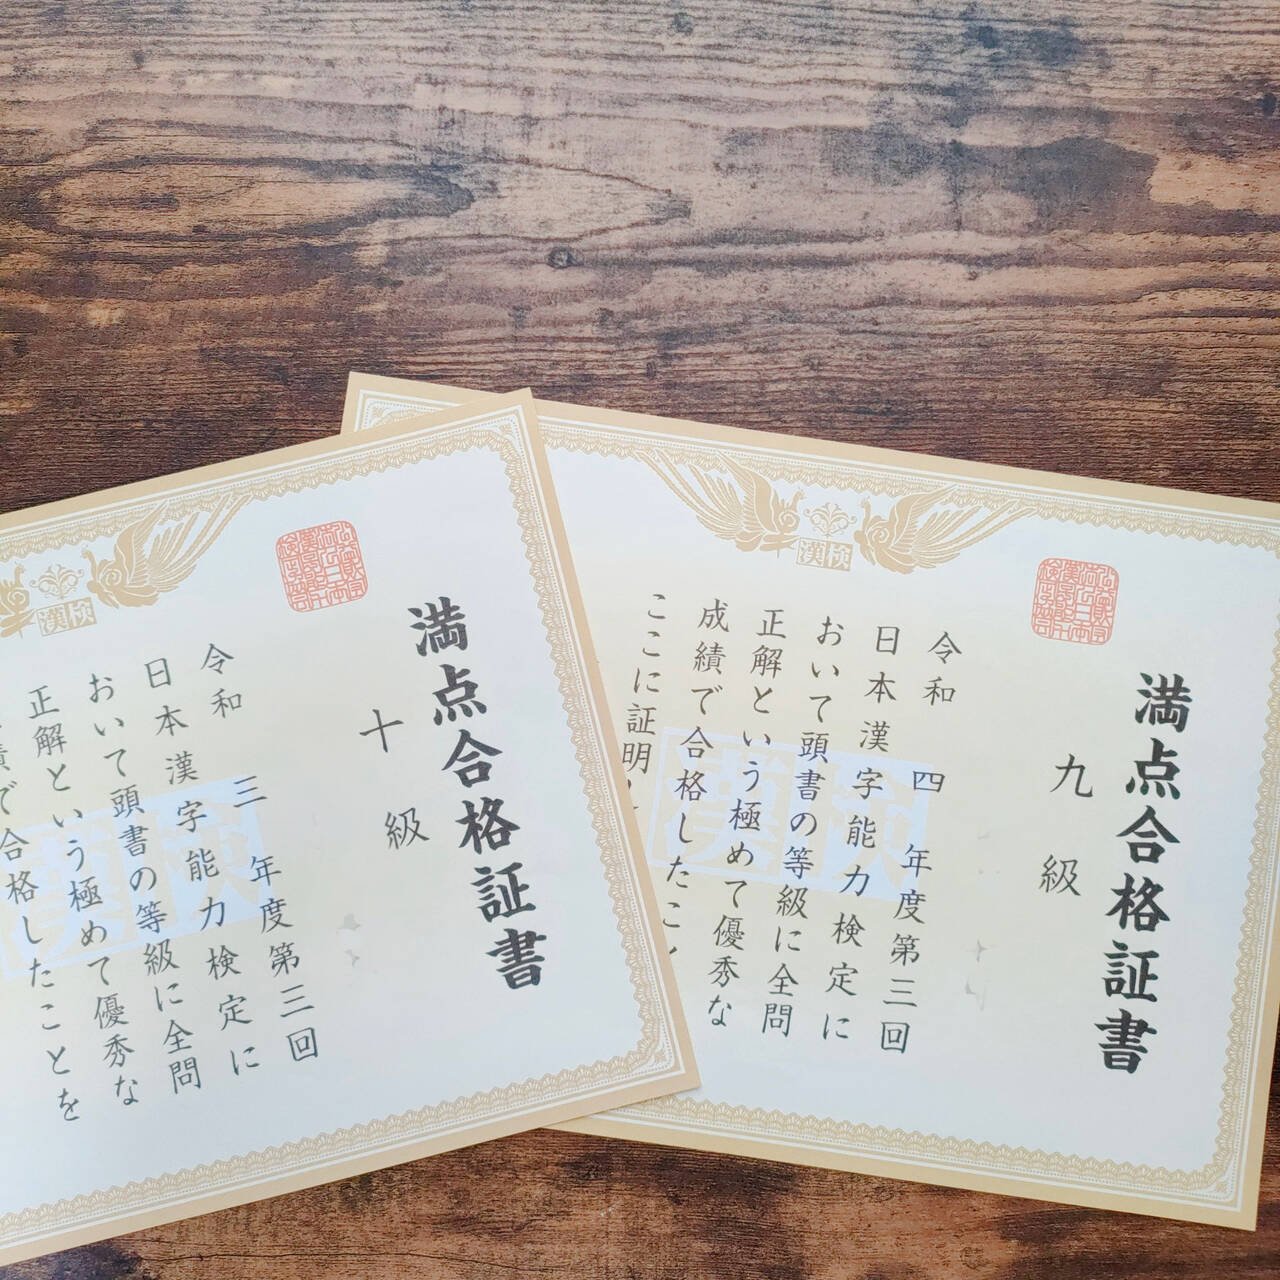 満点合格証書
十級
令和 三 年度第三回
日本漢字能力検定に
おいて頭書の等級に全問
正解という極めて優秀な
績で合格したことを
漢検
漢検
満点合格証書
九級
令和 四 年度第三回
日本漢字能力検定に
おいて頭書の等級に全問
正解という極めて優秀な
成績で合格したこと
ここに証明
漢検
漢検